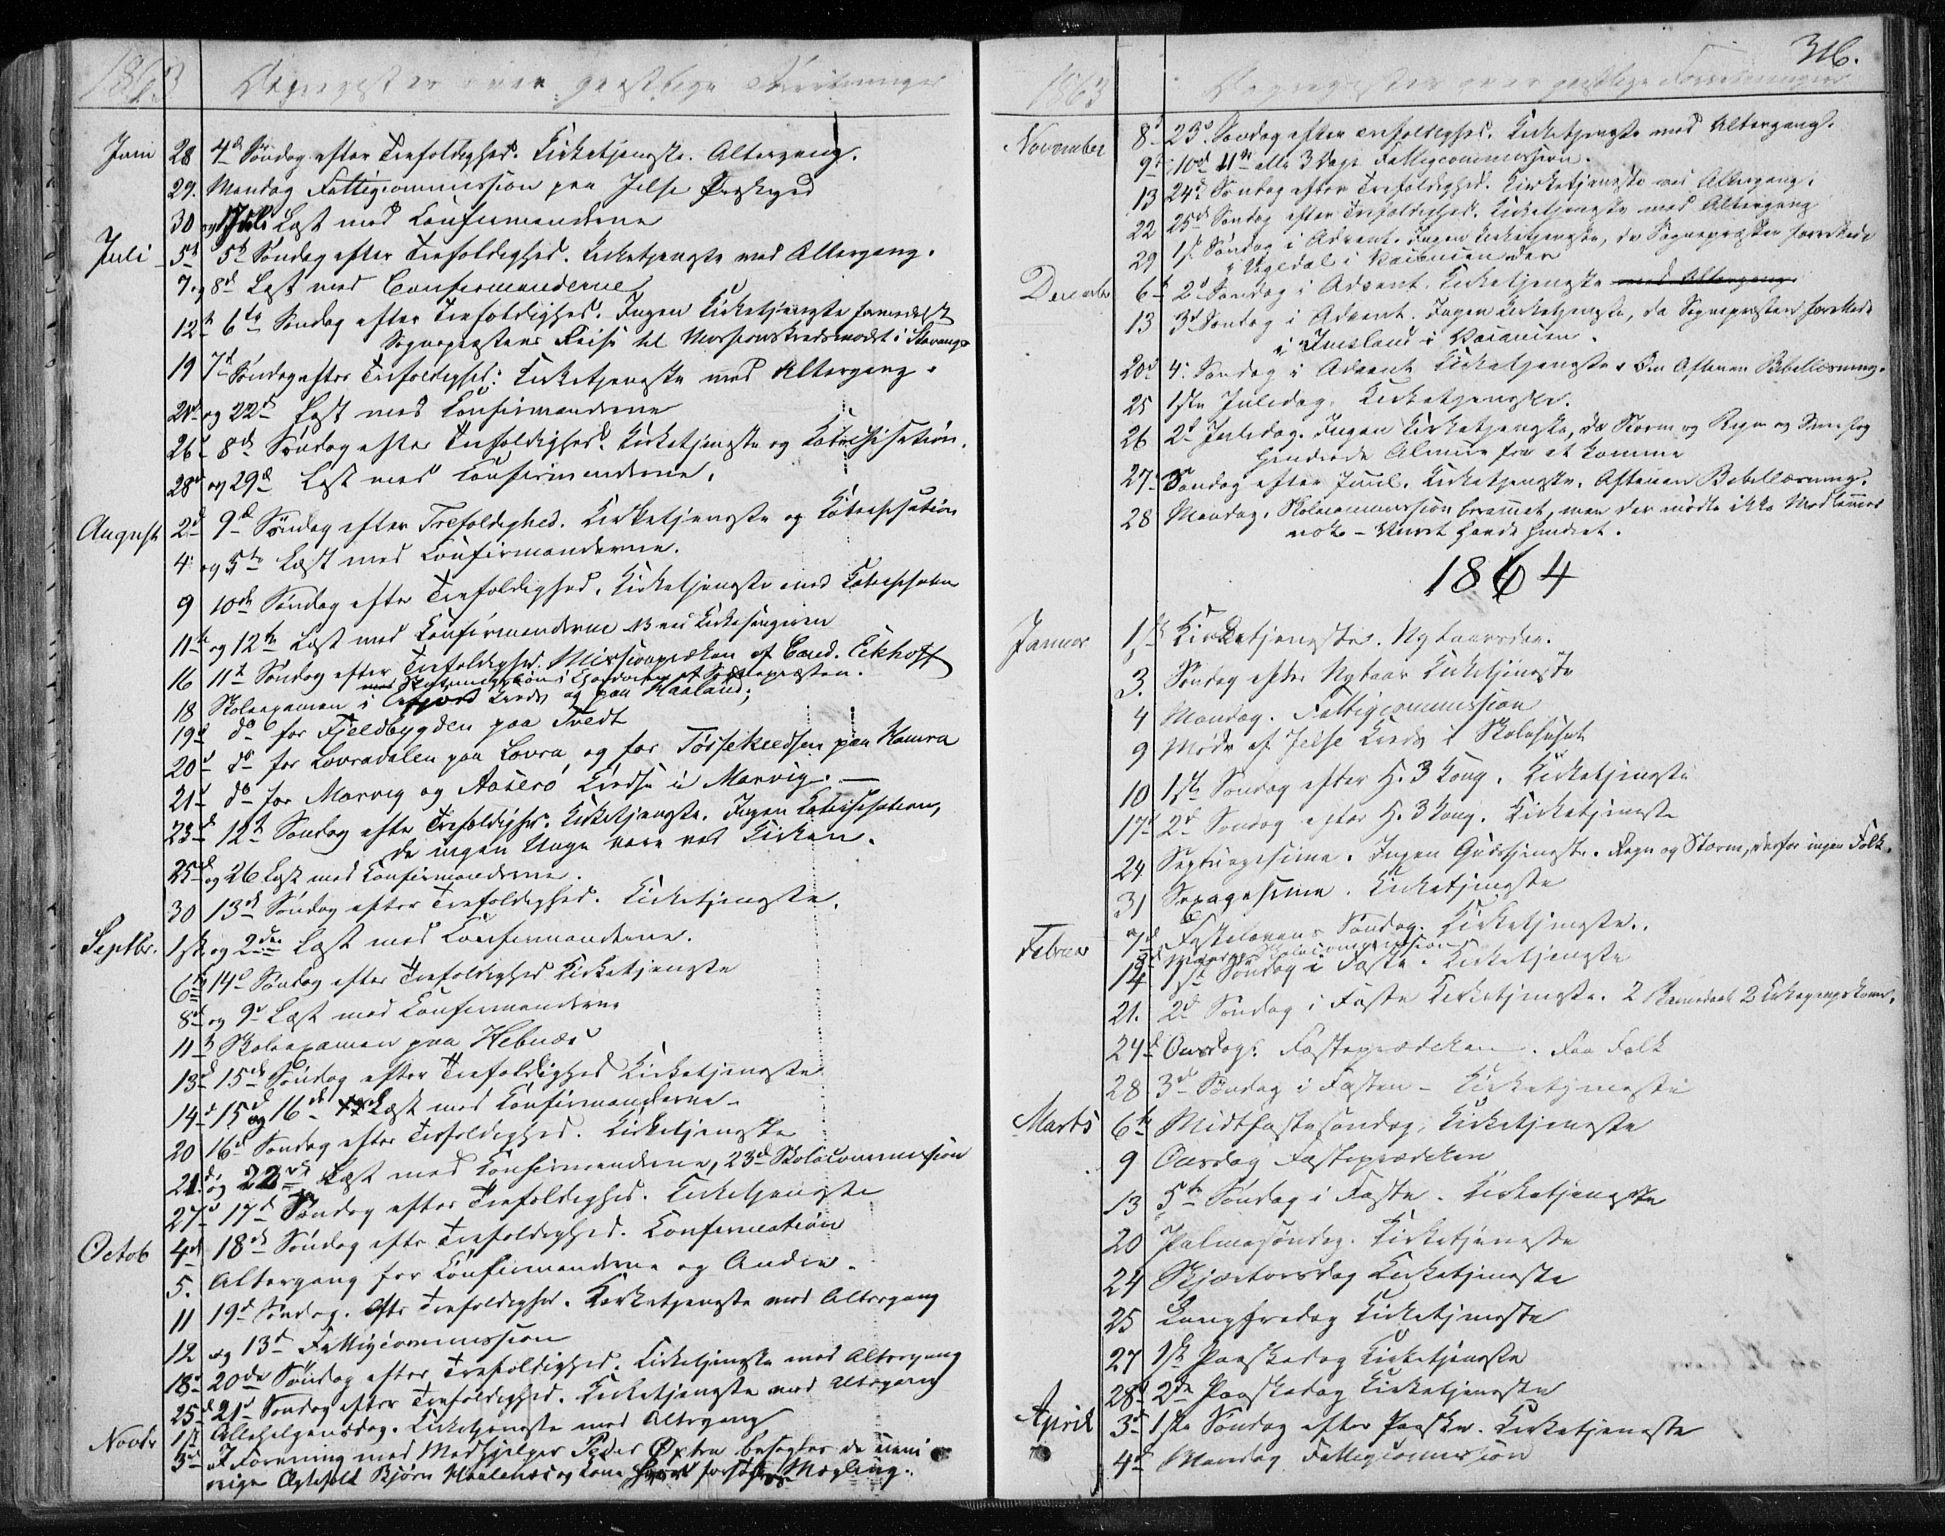 1863 Dagregister over geistlige Forretninger
Juni 28 4d Søndag efter Trefoldighed. Kirketjeneste. Altergang.
29. Mandag Fattigcommission paa Jelse Præstegaard
30 og 1 Juli Læst med Confirmanderne
Juli 5te 5te Søndag efter Trefoldighed. Kirketjeneste med Altergang.
7 og 8d Læst med Confirmanderne
12te 6te Søndag efter Trefoldighed. Ingen Kirketjeneste formedelst
Sognepræstens Reise til Missionskredsmødet i Stavanger
19 7d Søndag efter Trefoldighed: Kirketjeneste med Altergang.
21d og 22d Læst med Confirmanderne
26d 8de Søndag efter Trefoldighed. Kirketjeneste og Katechisation.
28d og 29d Læst med Confirmanderne.
August 2d 9d Søndag efter Trefoldighed. Kirketjeneste og Katechisation
4 og 5te Læst med Confirmanderne.
9 10de Søndag efter Trefoldighed. Kirketjeneste med Katechisation
11te og 12te Læst med Confirmanderne NB ved Kirkesangeren
16 11te Søndag efter Trefoldighed. Missionspræken af Cand. Eckhoff
18 Skoleexamen i Kreds og paa Haaland;
19d do for Fjeldbygden paa Tvedt
20d do for Lovradalen paa Lovra, og for Tøssekredsen paa Hamra
21d do for Marvig og Aaserø Kredse i Marvig.
23d 12te Søndag efter Trefoldighed. Kirketjeneste. Ingen Katechisation,
da ingen Unge vare ved Kirken.
25d og 26 Læst med Confirmanderne.
30 13de Søndag efter Trefoldighed. Kirketjeneste.
Septbr. 1ste og 2den Læst med Confirmanderne.
6te 14d Søndag efter Trefoldighed Kirketjeneste
8d og 9d Læst med Confirmanderne
11te Skoleexamen paa Hebnæs
13d 15de Søndag efter Trefoldighed Kirketjeneste
14d 15d og 16d Læst med Confirmanderne
20 16d Søndag efter Trefoldighed. Kirketjeneste
21d og 22d Læst med Confirmanderne, 23d Skolecommission
27d 17d Søndag efter Trefoldighed. Kirketjeneste
Octob 4de 18de Søndag efter Trefoldighed. Confirmation
5. Altergang for Confirmanderne og Andre.
11 19d Søndag. Efter Trefoldighed. Kirketjeneste med Altergang
12 og 13d Fattigcommission
18d 20de Søndag efter Trefoldighed. Kirketjeneste med Altergang
25d 21d Søndag efter Trefoldighed. Kirketjeneste med Altergang
Novbr 1ste Allehelgensdag. Kirketjeneste med Altergang
3d I Forening med Medhjelper Peder Øxtra besøgtes de ueni
Ægtefolk Bjørn og Kone Mægling.
316.
1863 Dagregister over geistlige Forretninger
November 8d 23d Søndag efter Trefoldighed. Kirketjeneste med Altergang.
9d 10d 11te alle 3 Dage Fattigcommission.
13 24d Søndag efter Trefoldighed. Kirketjeneste med Altergang.
22 25de Søndag efter Trefoldighed. Kirketjeneste med Altergang
29 1ste Søndag i Advent. Ingen Kirketjeneste, da Sognepræsten forrettede
i Vigedal i Vacancen der
Decemb 6te 2d Søndag i Advent. Kirketjeneste med Altergang
13 3d Søndag i Advent. Ingen Kirketjeneste, da Sognepræsten forrettede
i Imsland i Vacancen.
20d 4. Søndag i Advent Kirketjeneste. Om Aftenen Bibellæsning.
25 1ste Juledag. Kirketjeneste.
26 2d Juledag. Ingen Kirketjeneste, da Storm og Regn og Snefog
hindrede Almuen fra at komme
27. Søndag efter Juul. Kirketjeneste. Aftenen Bibellæsning.
28 Mandag. Skolecommission berammet, men der mødte ikke Medlemmer
nok – Veiret havde hindret.
1864
Januar 1ste Kirketjeneste. Nytaarsdag.
3. Søndag efter Nytaar Kirketjeneste
4 Mandag. Fattigcommission
9 Møde af Jelse Kreds i Skolehuset
10 1ste Søndag efter H. 3 Kong. Kirketjeneste
17d 2d Søndag efter H. 3 Kong. Kirketjeneste
24 Septuagesima. Ingen Gudstjeneste. Regn og Storm, derfor ingen Folk.
31 Sexagesima. Kirketjeneste
Februar 7d Fastelavens Søndag. Kirketjeneste.
8d Mandag Skolecommission
14 1ste Søndag i Faste. Kirketjeneste
21. 2d Søndag i Faste Kirketjeneste. 2 Barnedaab 2 Kirkegangskoner.
24d Onsdag. Fasteprædiken. Faa Folk
28 3d Søndag i Fasten – Kirketjeneste
Marts 6te Midtfastesøndag. Kirketjeneste
9 Onsdag Fasteprædiken
13 5te Søndag i Faste. Kirketjeneste
20 Palmesøndag. Kirketjeneste
24 Skjærtorsdag Kirketjeneste
25 Langfredag Kirketjeneste
27 1ste Paaskedag Kirketjeneste
28d 2den Paaskedag Kirketjeneste
April 3d 1ste Søndag efter Paaske. Kirketjeneste
4d Mandag Fattigcommission